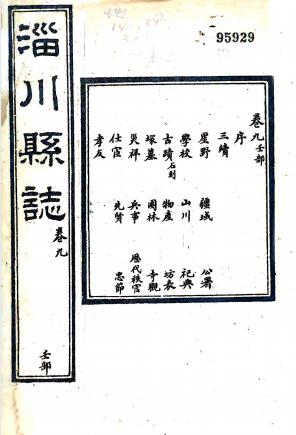 95929
淄川縣誌 卷九 壬部
卷九 壬部
序
三續
星野 疆域 公署
學校 山川 祀典
古蹟 石刻 物產 坊表
塚墓 園林 寺觀
災祥 兵事 歷代秩官
仕宦 先賢 忠節
孝友